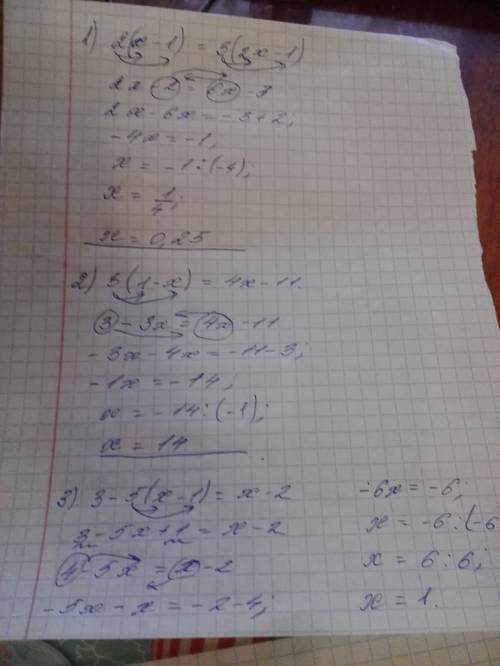 1) 2(x-1) = 3(2x-1)
2x-2 = 6x-3
2x-6x = -3+2;
-4x = -1;
x = -1:(-4);
x = 1/4;
x = 0,25
2) 3(1-x) = 4x-11.
3-3x = 4x-11
-3x-4x = -11-3;
-1x = -14;
x = -14:(-1);
x = 14
3) 3-5(x-1) = x-2
3-5x+1 = x-2
4-5x = x-2
-5x-x = -2-4;
-6x = -6;
x = -6:(-6
x = 6:6;
x = 1.